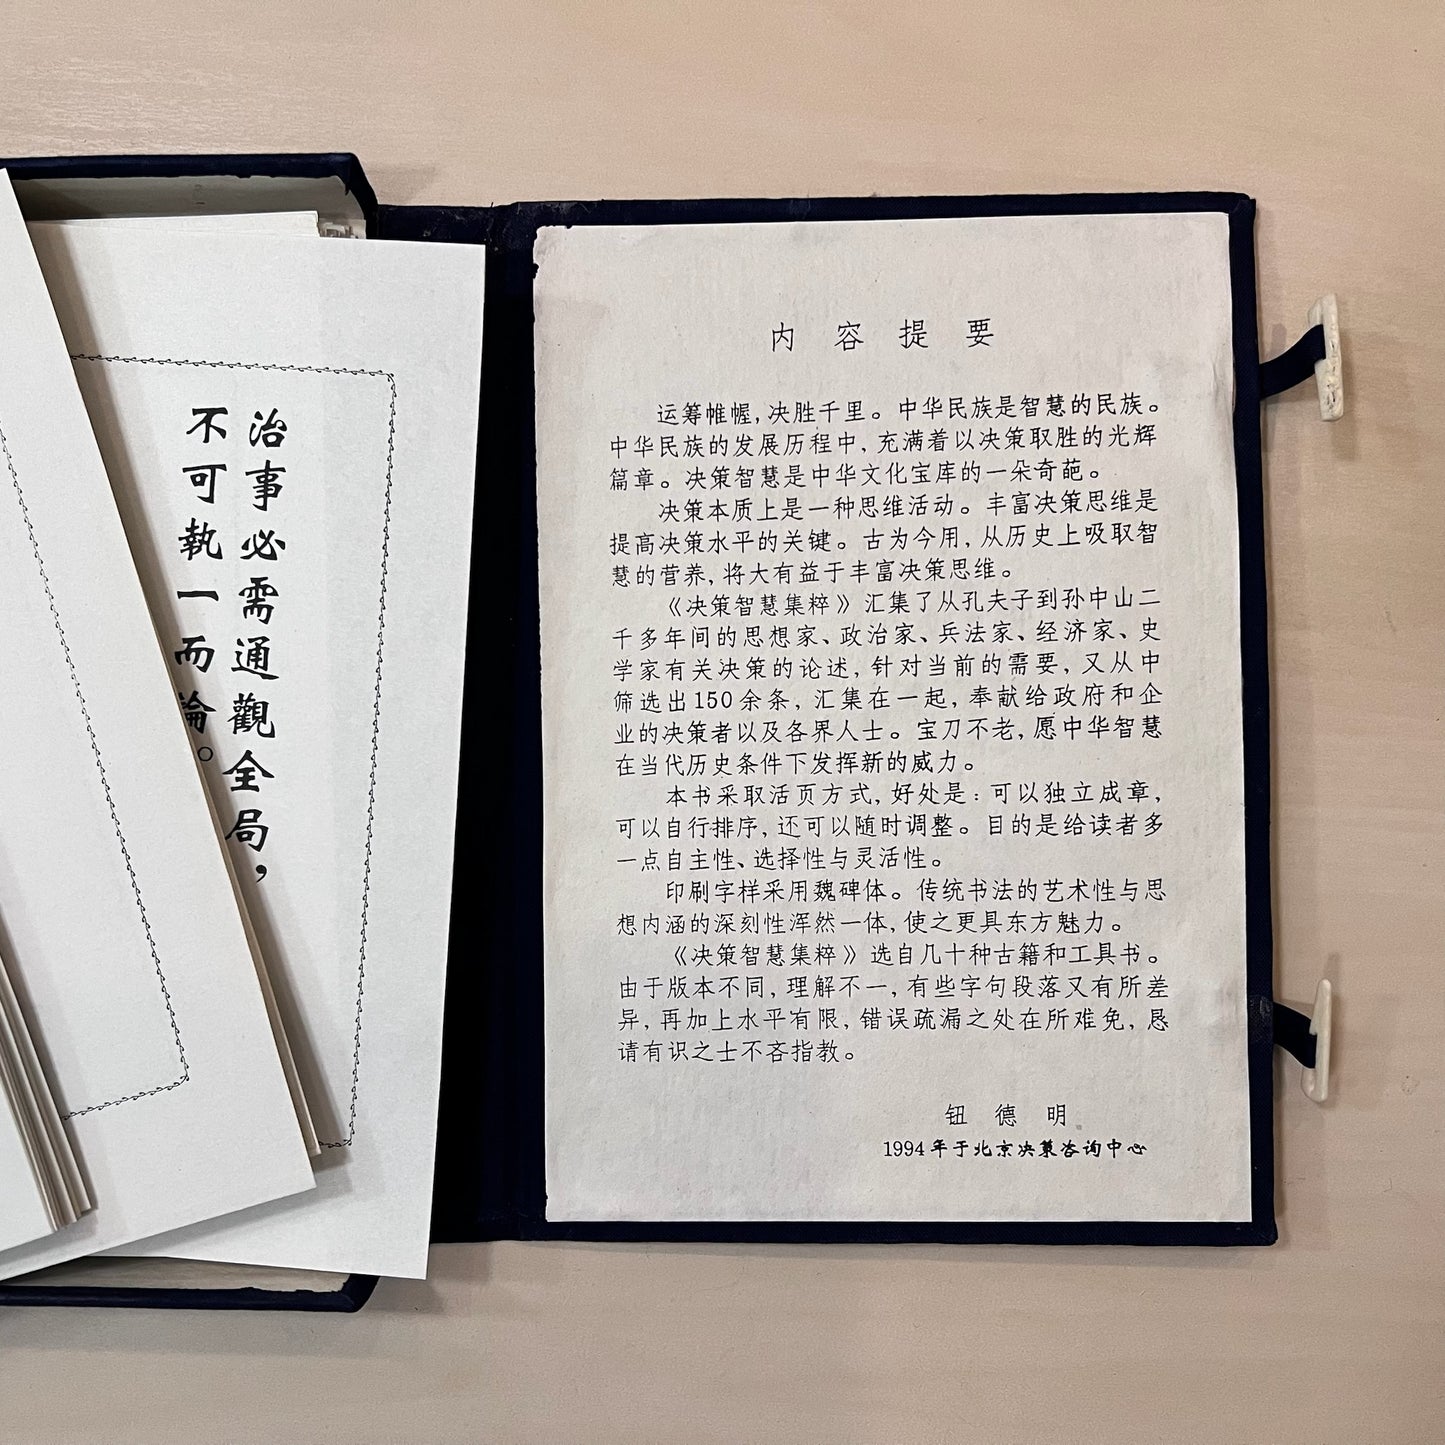 治事必需通觀全局，
不可執一而論。
内容提要
运筹帷幄，决胜千里。中华民族是智慧的民族。
中华民族的发展历程中，充满着以决策取胜的光辉
篇章。决策智慧是中华文化宝库的一朵奇葩。
决策本质上是一种思维活动。丰富决策思维是
提高决策水平的关键。古为今用，从历史上吸取智
慧的营养，将大有益于丰富决策思维。
《决策智慧集粹》汇集了从孔夫子到孙中山二
千多年间的思想家、政治家、兵法家、经济家、史
学家有关决策的论述，针对当前的需要，又从中
筛选出150余条，汇集在一起，奉献给政府和企
业的决策者以及各界人士。宝刀不老，愿中华智慧
在当代历史条件下发挥新的威力。
本书采取活页方式，好处是：可以独立成章，
可以自行排序，还可以随时调整。目的是给读者多
一点自主性、选择性与灵活性。
印刷字样采用魏碑体。传统书法的艺术性与思
想内涵的深刻性浑然一体，使之更具东方魅力。
《决策智慧集粹》选自几十种古籍和工具书。
由于版本不同，理解不一，有些字句段落又有所差
异，再加上水平有限，错误疏漏之处在所难免，恳
请有识之士不吝指教。
钮德明
1994年于北京决策咨询中心